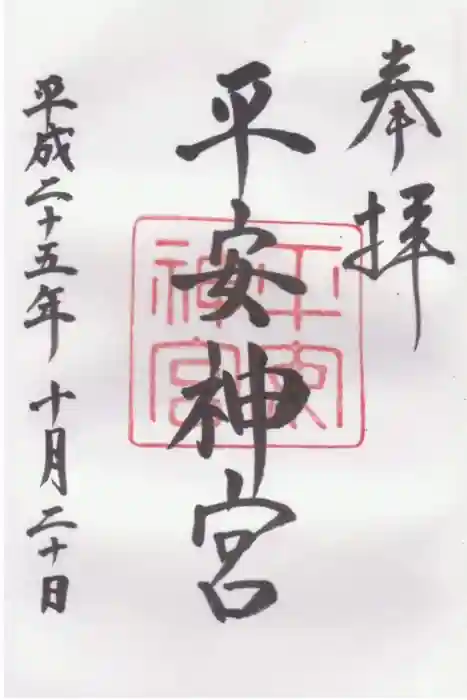 奉拝
平安神宮
平成二十五年 十月二十日
平安神宮